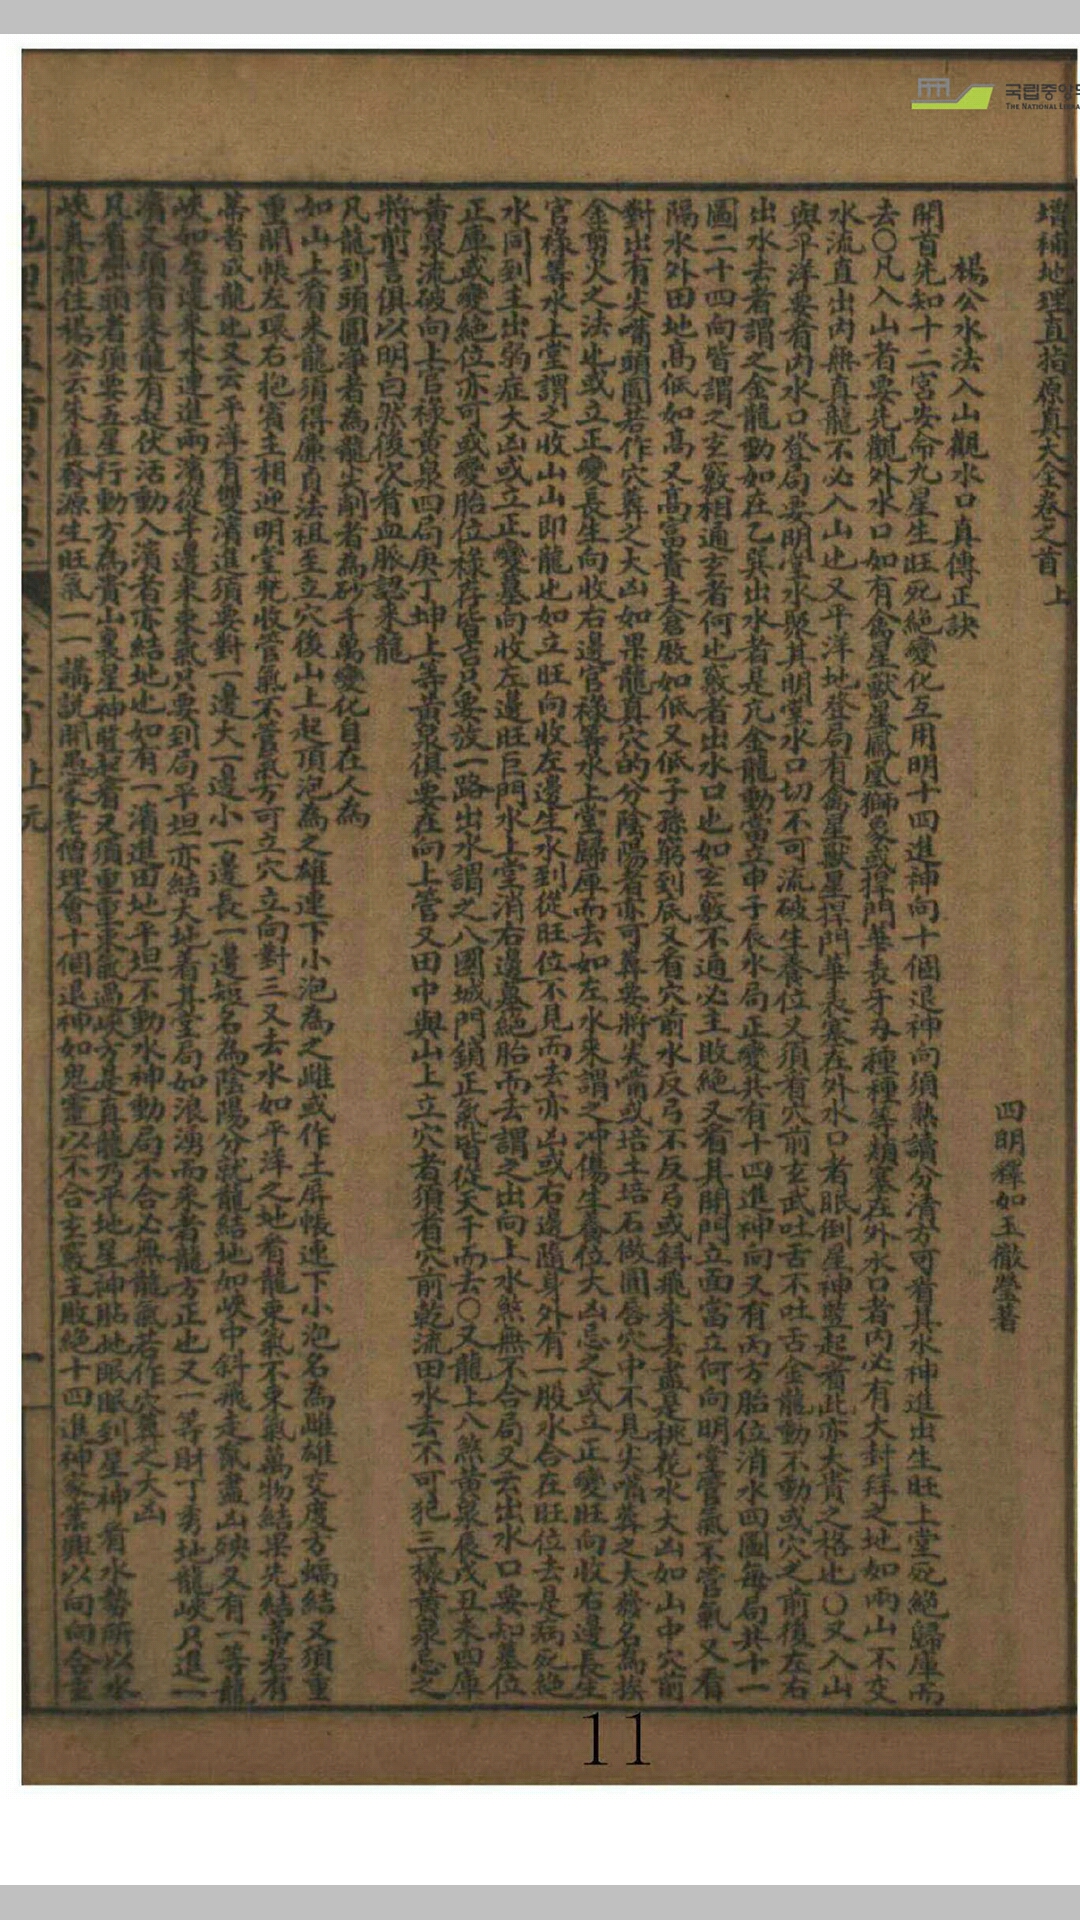 국립중앙도
THE NATIONAL LIBRA
增補地理直指原真大全卷之首 上
四明釋如玉徹瑩著
楊公水法入山觀水口真傳正訣
開首先知十二宮安命九星生旺死絕變化互用明十四進神向十個退神向須熟讀分清方可看其水神進出生旺上堂死絕歸庫而
去〇凡入山者要先觀外水口如有禽星獸星鳳凰獅象或捍門華表牙刀種種等類塞在外水口者內必有大封拜之地如兩山不交
水流直出內無真龍不必入山也又平洋地登局有禽星獸星捍門華表塞在外水口者眼倒星神豎起看此亦大貴之格也〇又入山
與平洋要看內水口登局要明堂水聚其明堂水口切不可流破生養位又須看穴前玄武吐舌不吐舌金龍動不動或穴之前後左右
出水去者謂之金龍動如在乙巽出水者是亢金龍動當立申子辰水局正變共有十四進神向又有丙方胎位消水四圖每局其十一
圖二十四向皆謂之玄竅相通玄者何也竅者出水口也如玄竅不通必主敗絕又看其開門立面當立何向明堂管氣不管氣又看
隔水外田地高低如高又高富貴主倉廒如低又低子孫窮到底又看穴前水反弓不反弓或斜飛來去盡是桃花水大凶如山中穴前
對出有尖嘴頭圓若作穴葬之大凶如果龍真穴的分陰陽者亦可葬要將尖嘴或培土培石做圓唇穴中不見尖嘴葬之大發名為挨
金剪火之法也或立正變長生向收右邊官祿等水上堂歸庫而去如左水來謂之冲傷生養位大凶忌之或立正變旺向收右邊長生
官祿等水上堂謂之收山山即龍也如立旺向收左邊生水到從旺位不見而去亦凶或右邊隨身外有一股水合在旺位去是病死絕
水同到主出弱症大凶或立正變墓向收左邊旺巨門水上堂消右邊墓絕胎而去謂之出向上水煞無不合局又云出水口要知墓位
正庫或變絕位亦可或變胎位祿存皆吉只要放一路出水謂之八國城門鎖正氣皆從天干而去〇又龍上八煞黃泉辰戌丑未四庫
黃泉流破向上官祿黃泉四局庚丁坤上等黃泉俱要在向上管又田中與山上立穴者須看穴前乾流田水去不可犯三樣黃泉忌之
將前言俱以明白然後次看血脈認來龍
凡龍到頭圓淨者為龍尖削者為砂千萬變化自在人為
如山上看來龍須得廉貞法祖至立穴後山上起頂泡為之雄連下小泡為之雌或作土屏帳連下小泡名為雌雄交度方蝠結又須重
重開帳左環右抱賓主相迎明堂聚收管氣不管氣方可立穴立向對三叉去水如平洋之地看龍束氣不束氣萬物結果先結蒂若有
蒂者成龍也又云平洋有雙濱進須要對一邊大一邊小一邊長一邊短名為陰陽分就龍結地如峽中斜飛走竄盡凶殃又有一等龍
峽如左邊來水連進兩濱從半邊來束氣只要到局平坦亦結大地着其堂局如浪湧而來者龍方正也又一等財丁秀地龍峽只進一
濱又須看來龍有起伏活動入濱者亦結地也如有一濱進田地平坦不動水神動局不合必無龍氣若作穴葬之大凶
凡看巒頭者須要五星行動方為貴山裏星神豎起看又須重重束氣過峽方是真龍乃平地星神貼地眠眼到星神看水勢所以水
峽真龍住楊公云朱雀發源生旺氣一一講說開愚蒙老僧理會十個退神如鬼靈以不合玄竅主敗絕十四進神家業興以向向合重
一
11